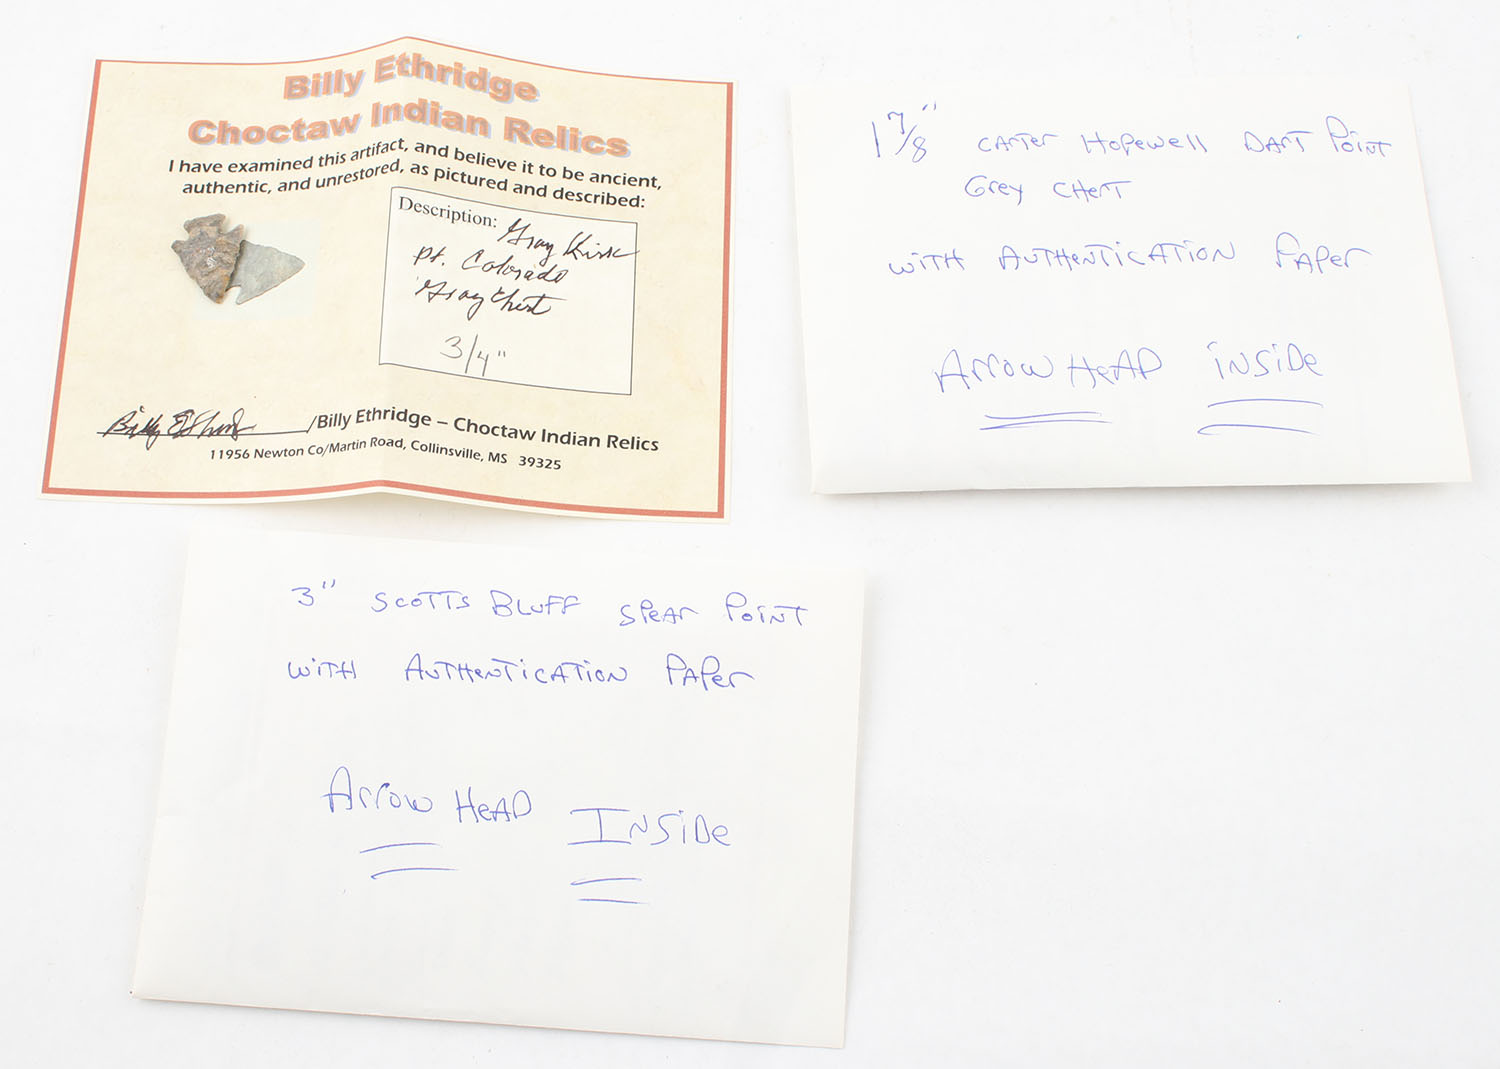 Billy Ethridge
Choctaw Indian Relics
I have examined this artifact, and believe it to be ancient,
authentic, and unrestored, as pictured and described:
Description: Gray Kirk
Pt. Colorado
Gray Chert
3/4"
Billy Ethridge /Billy Ethridge – Choctaw Indian Relics
11956 Newton Co/Martin Road, Collinsville, MS 39325
1 7/8" CARTER HOPEWELL DART POINT
GREY CHERT
WITH AUTHENTICATION PAPER
ARROW HEAD INSIDE
3" SCOTTS BLUFF SPEAR POINT
WITH AUTHENTICATION PAPER
ARROW HEAD INSIDE